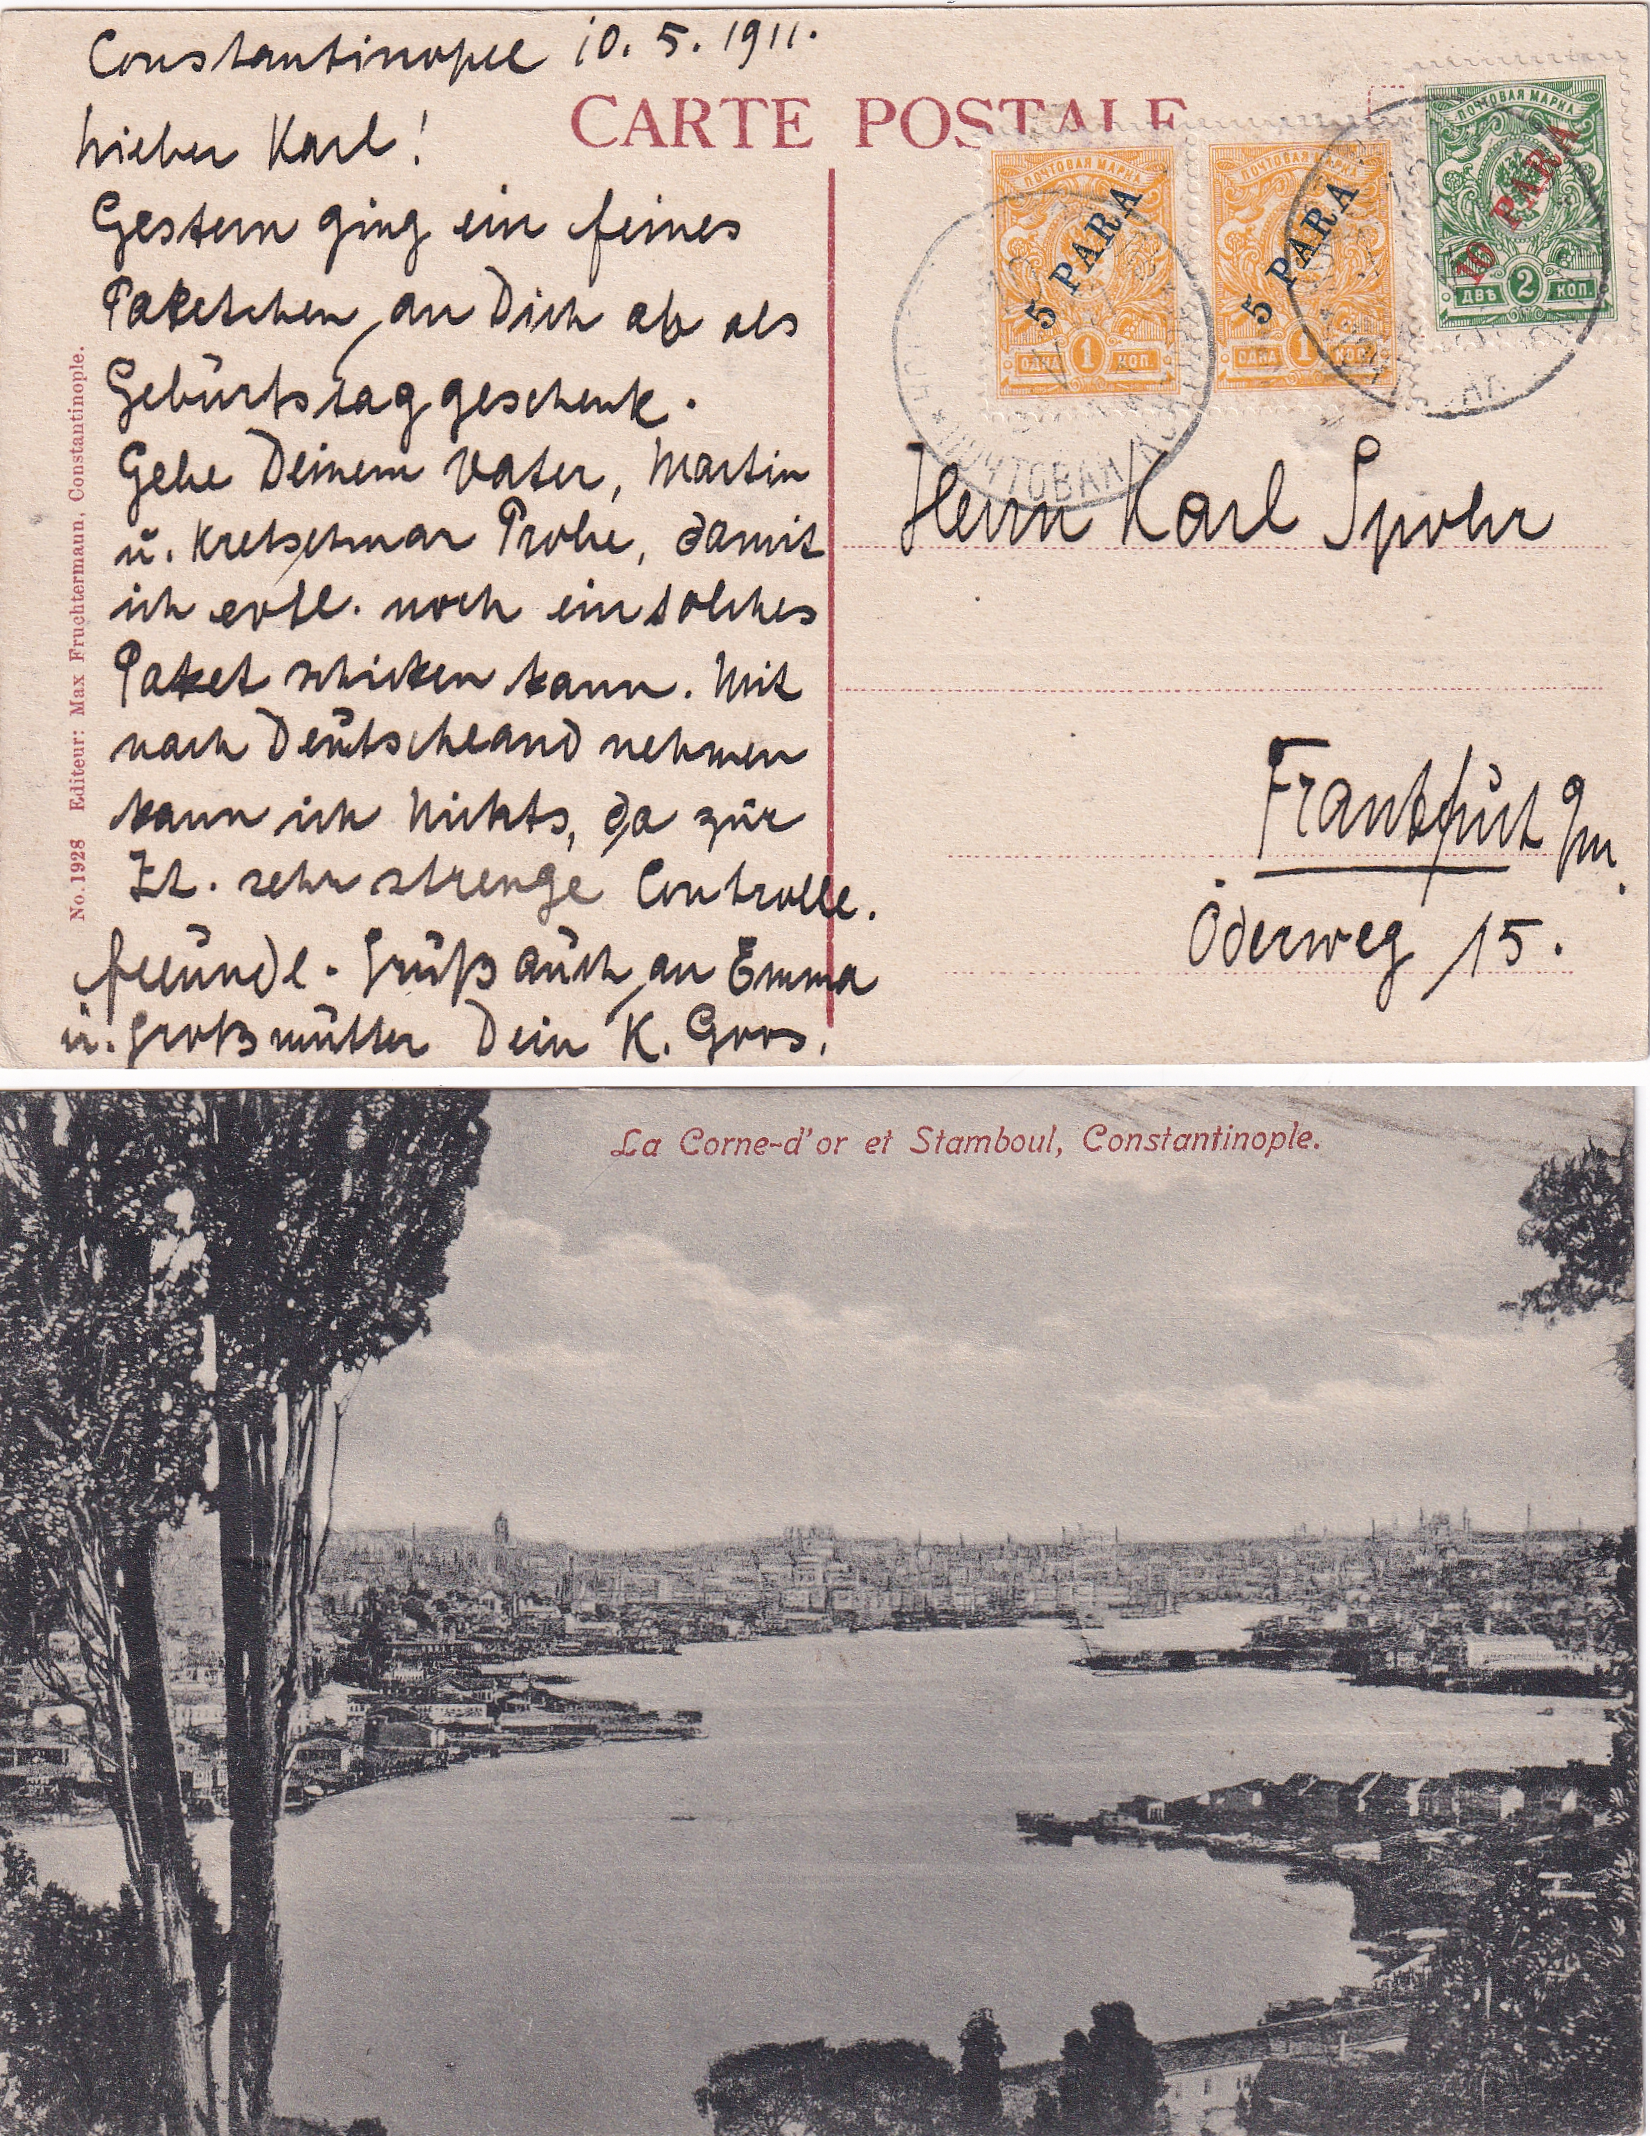 Constantinopel 10. 5. 1911.
CARTE POSTALE
Lieber Karl!
Gestern ging ein feines
Paketchen an Dich ab als
Geburtstaggeschenk.
Gebe Deinem Vater, Martin
u. Kretschmar Probe, damit
ich evtl. noch ein solches
Paket schicken kann. Mit
nach Deutschland nehmen
kann ich Nichts, da zur
Zt. sehr strenge Controlle.
freundl. Gruß auch an Emma
u. Großmutter Dein K. Gros.
No. 1928 Editeur: Max Fruchtermann, Constantinople.
ПОЧТОВАЯ МАРКА
5 PARA
ОДНА 1 КОП.
ПОЧТОВАЯ МАРКА
5 PARA
ОДНА 1 КОП.
ПОЧТОВАЯ МАРКА
10 PARA
ДВѢ 2 КОП.
ПОЧТОВАЯ
Herrn Karl Spohr
Frankfurt a/m.
Oderweg 15.
La Corne-d'or et Stamboul, Constantinople.